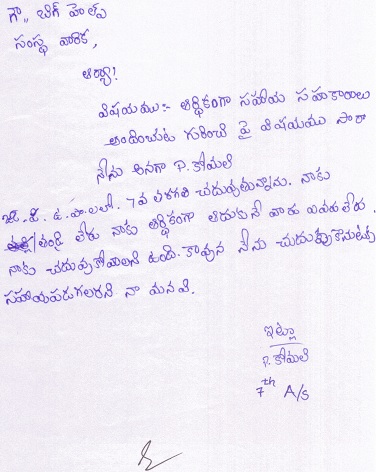 గౌ,, బిగ్ హెల్ప్
సంస్థ వారికి,
ఆర్యా!
విషయము:- ఆర్థికంగా సహాయ సహకారాలు
అందించుట గురించి పై విషయము సారా
నేను అనగా P. కోమలి
జి. ప. ఉ. పా.లలో. 7వ తరగతి చదువుతున్నాను. నాకు
తండ్రి లేరు నాకు ఆర్థికంగా ఆదుకునే వారు ఎవరు లేరు.
నాకు చదువుకోవాలని ఉంది. కావున నేను చదువుకొనుటకు
సహాయపడగలరని నా మనవి.
ఇట్లు
P. కోమలి
7th A/s